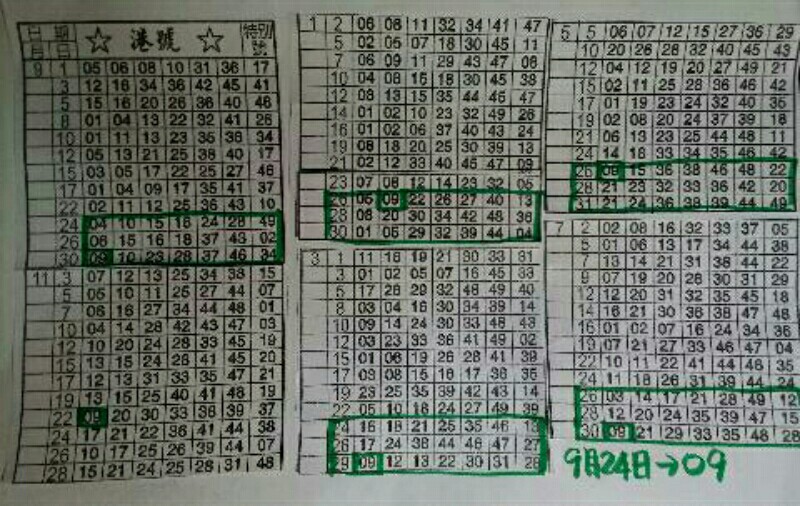 日 期 ☆ 港號 ☆ 特別
月 日 號
9 1 05 06 08 10 31 36 17
3 12 16 34 36 42 45 41
5 15 16 20 26 36 40 46
8 01 04 13 22 32 41 26
10 01 11 13 23 35 36 34
12 05 13 21 25 38 40 17
15 03 05 17 22 25 27 46
17 01 04 09 17 35 41 37
22 02 11 12 25 36 43 10
24 04 10 15 16 24 28 49
26 06 15 16 18 37 43 02
30 09 10 23 28 37 46 34
11 3 07 12 13 25 34 38 15
5 05 10 11 25 27 44 07
8 06 16 27 34 44 48 01
10 04 14 28 42 43 47 03
12 10 20 24 28 33 45 19
15 13 15 24 26 41 45 20
17 12 13 31 33 35 47 21
19 13 15 25 40 41 48 19
22 09 20 30 33 36 39 37
24 17 21 22 36 41 44 38
26 10 17 25 26 39 44 07
28 15 21 24 25 28 31 48
1 2 06 08 11 32 34 41 47
5 02 05 07 18 30 45 11
7 06 09 11 29 43 47 08
10 04 08 15 18 30 45 38
12 08 13 15 35 44 46 47
14 01 02 10 23 32 49 26
16 01 02 06 37 40 43 24
19 08 18 20 25 30 39 13
21 02 12 33 40 45 47 09
23 07 08 12 14 23 32 05
26 05 09 22 26 27 40 13
28 08 20 30 34 42 48 36
30 01 05 29 32 39 44 04
3 1 11 16 19 21 30 33 31
3 01 02 05 07 16 45 33
5 17 26 29 32 48 49 40
8 03 04 16 30 34 39 14
10 09 14 24 30 33 48 43
12 03 23 33 36 41 49 02
15 01 06 19 26 28 41 39
17 03 08 15 16 17 36 30
19 23 25 35 39 42 43 14
22 05 10 16 24 27 49 39
24 16 18 21 25 35 46 13
26 17 24 36 44 46 47 27
29 09 12 13 22 30 31 28
5 5 06 07 12 15 27 36 29
10 20 26 28 32 40 45 43
12 04 12 19 20 27 49 21
15 02 11 25 28 36 46 42
17 01 19 23 24 32 40 35
19 02 08 20 24 37 39 18
21 06 13 23 25 44 48 11
24 14 18 33 34 35 46 42
26 09 15 36 38 46 48 22
28 21 23 32 33 36 42 20
31 21 24 36 38 39 44 49
7 2 02 08 16 32 33 37 05
5 01 06 13 17 34 44 38
7 13 14 21 31 38 44 22
9 07 19 20 26 30 31 29
12 12 20 31 32 35 45 18
14 16 21 30 36 38 47 48
16 01 02 07 16 24 34 36
19 07 21 27 33 46 47 04
22 10 11 22 41 44 46 35
24 11 18 26 31 39 44 24
26 03 14 17 21 28 49 12
28 12 20 24 35 39 47 15
30 09 21 29 33 35 48 28
9月24日→09